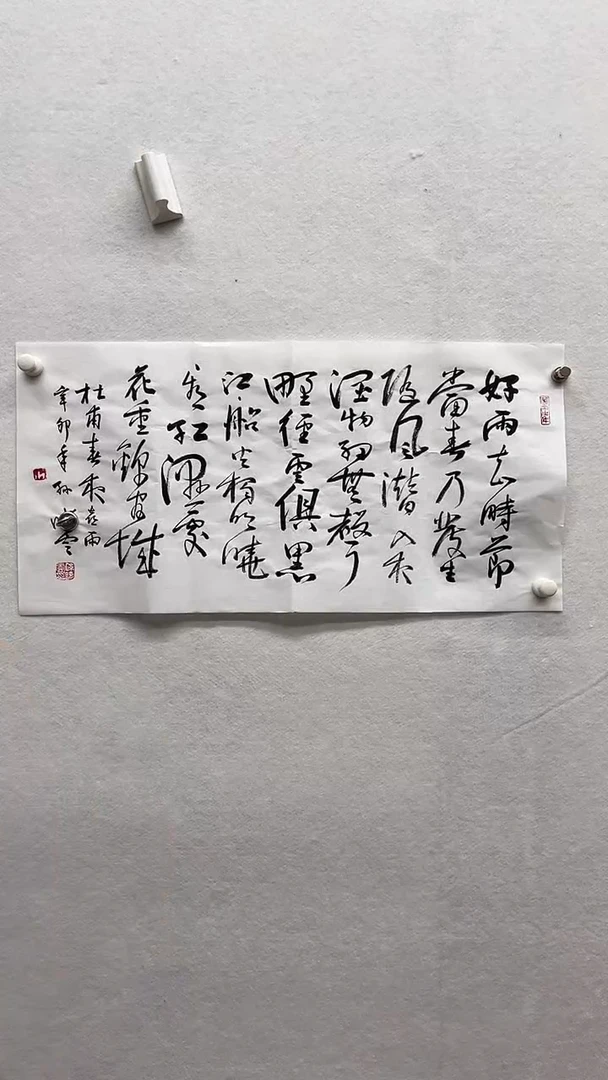 好雨知時節
當春乃發生
隨風潛入夜
潤物細無聲
野徑雲俱黑
江船火獨明曉
看紅濕處
花重錦官城
杜甫春夜喜雨
辛卯年孫曉雲